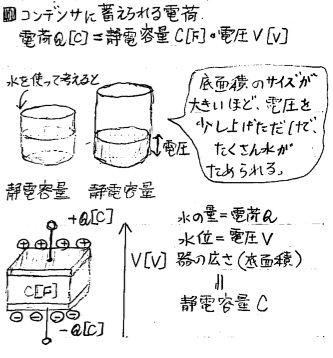 図コンデンサに蓄えられる電荷
電荷Q[C]=静電容量C[F]・電圧V[V]
水を使って考えると
底面積のサイズが
大きいほど、電圧を
少し上げただけで、
たくさん水が
ためられる。
電圧
静電容量 静電容量
+Q[C]
⊕ ⊕ ⊕ ⊕
C[F]
⊖ ⊖ ⊖ ⊖
-Q[C]
V[V]
水の量=電荷Q
水位=電圧V
器の広さ(底面積)
||
静電容量C